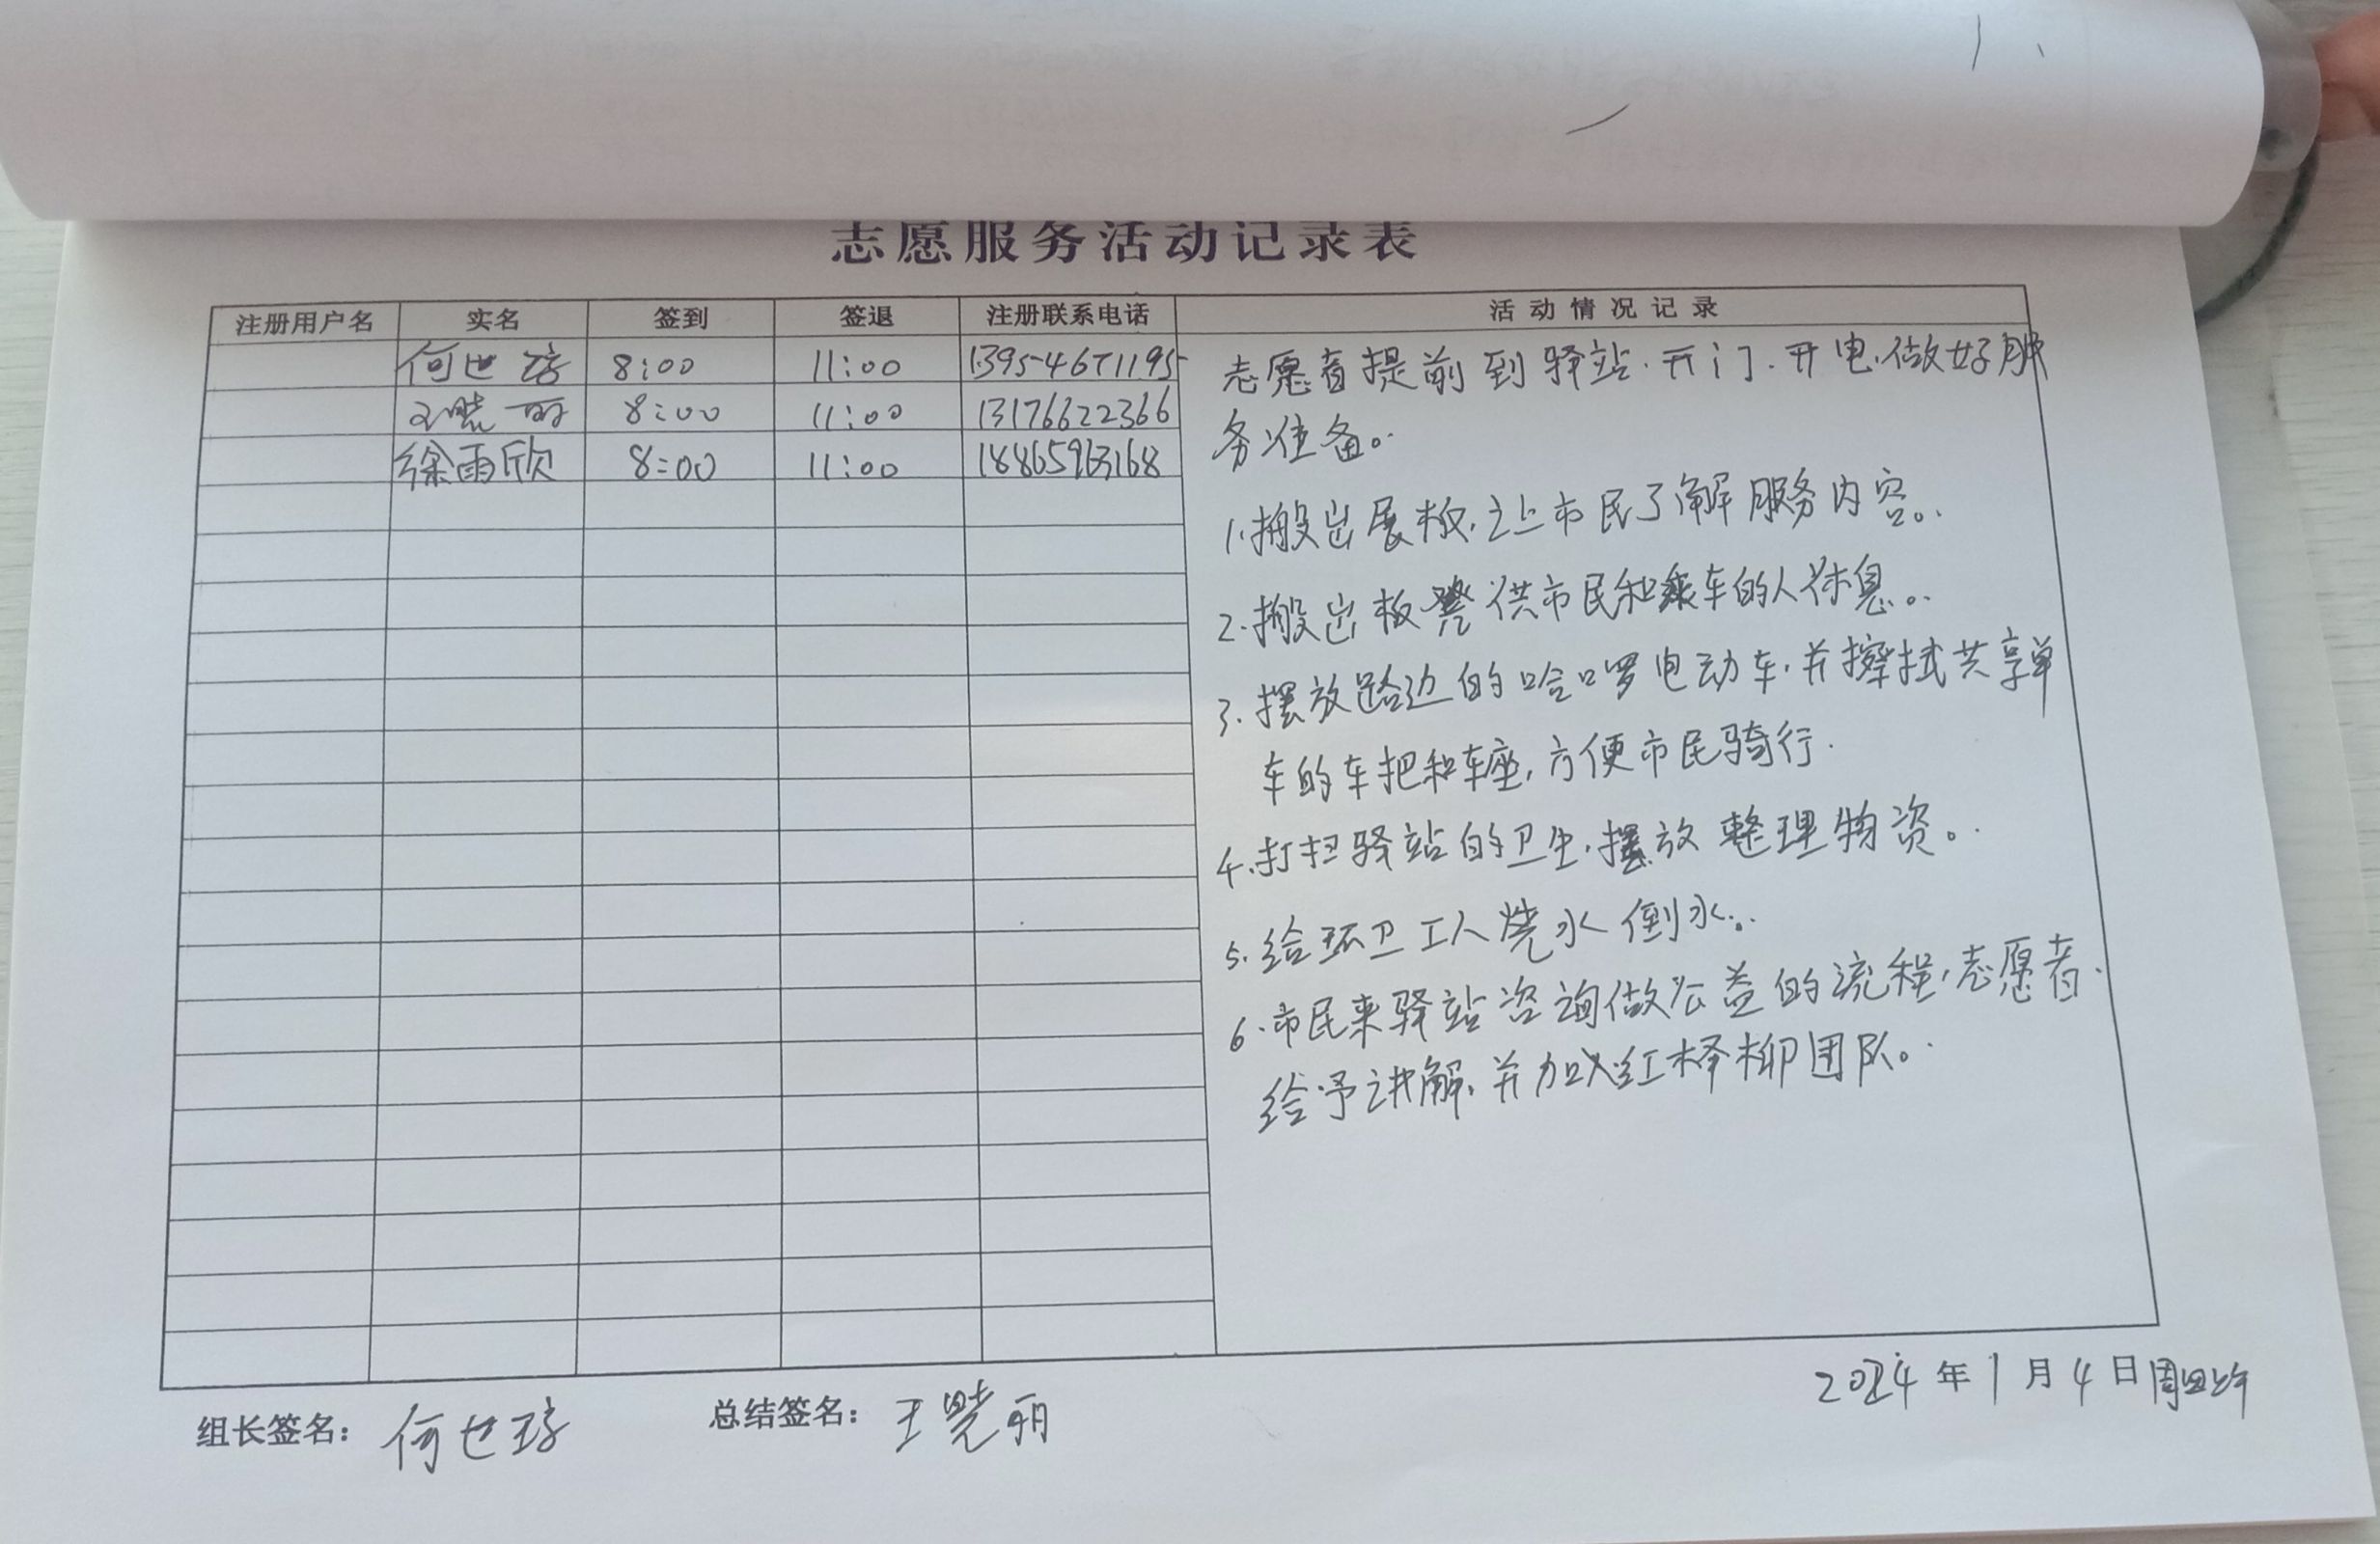 志愿服务活动记录表
注册用户名 实名 签到 签退 注册联系电话 活动情况记录
何世 8:00 11:00 13954671195
王晓丽 8:00 11:00 13176622366
徐雨欣 8:00 11:00 18865963168
志愿者提前到驿站.开门.开电.做好服
务准备。
1.搬出展板,让市民了解服务内容。
2.搬出板凳供市民和乘车的人休息。
3.摆放路边的哈啰电动车,并擦拭共享单
车的车把和车座,方便市民骑行.
4.打扫驿站的卫生,摆放整理物资。
5.给环卫工人烧水倒水。
6.市民来驿站咨询做公益的流程,志愿者
给予讲解,并加入红柽柳团队。
组长签名: 何世 总结签名: 王晓丽
2024年1月4日周四上午